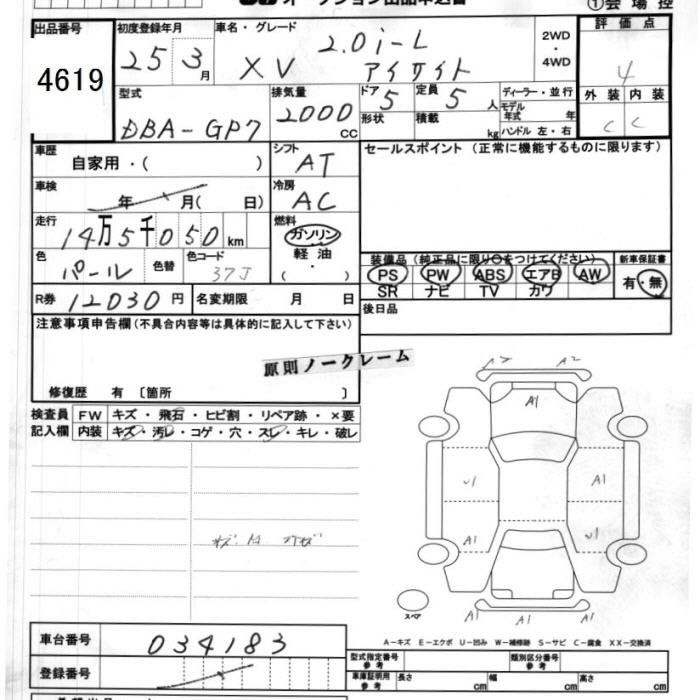 オークション出品申込書
①会場控
出品番号
4619
初度登録年月
25 3月
車名・グレード
XV 2.0i-L アイサイト
2WD・4WD
評価点
4
外装 内装
C C
型式
DBA-GP7
排気量
2000cc
ドア 5
形状
定員 5人
積載 kg
ディーラー・並行
モデル年式 年
ハンドル 左・右
車歴
自家用・( )
シフト
AT
セールスポイント (正常に機能するものに限ります)
車検
年 月( 日)
冷房
AC
走行
14万5千050km
燃料
ガソリン
軽油
( ・ )
色
パール
色替
色コード
37J
装備品(純正品に限り○をつけてください)
PS PW ABS エアB AW
SR ナビ TV カワ
新車保証書
有・無
R券 12030円
名変期限 月 日
後日品
注意事項申告欄(不具合内容等は具体的に記入して下さい)
原則ノークレーム
修復歴 有 〔箇所 〕
検査員記入欄
FW キズ・飛石・ヒビ割・リペア跡・×要
内装 キズ・汚レ・コゲ・穴・スレ・キレ・破レ
A2 A2
A1
U1 A1
A1 U1
A1 A1
スペア
A-キズ E-エクボ U-凹み W-補修跡 S-サビ C-腐食 XX-交換済
車台番号
034183
登録番号
型式指定番号 参考
類別区分番号 参考
車庫証明用 参考
長さ cm
幅 cm
高さ cm